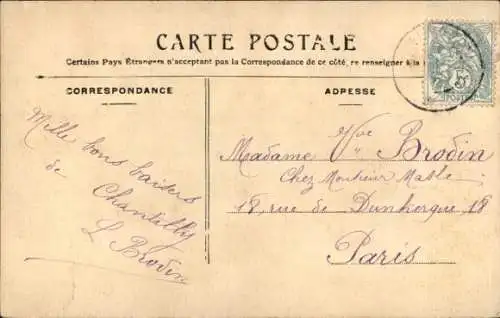 CARTE POSTALE
Certains Pays Étrangers n'acceptant pas la Correspondance de ce côté, se renseigner à la
CORRESPONDANCE
ADRESSE
Mille bons baisers
de
Chantilly
L Brodin
Vve
Madame " Brodin
Chez Monsieur Mable
18, rue de Dunkerque, 18
Paris
5c